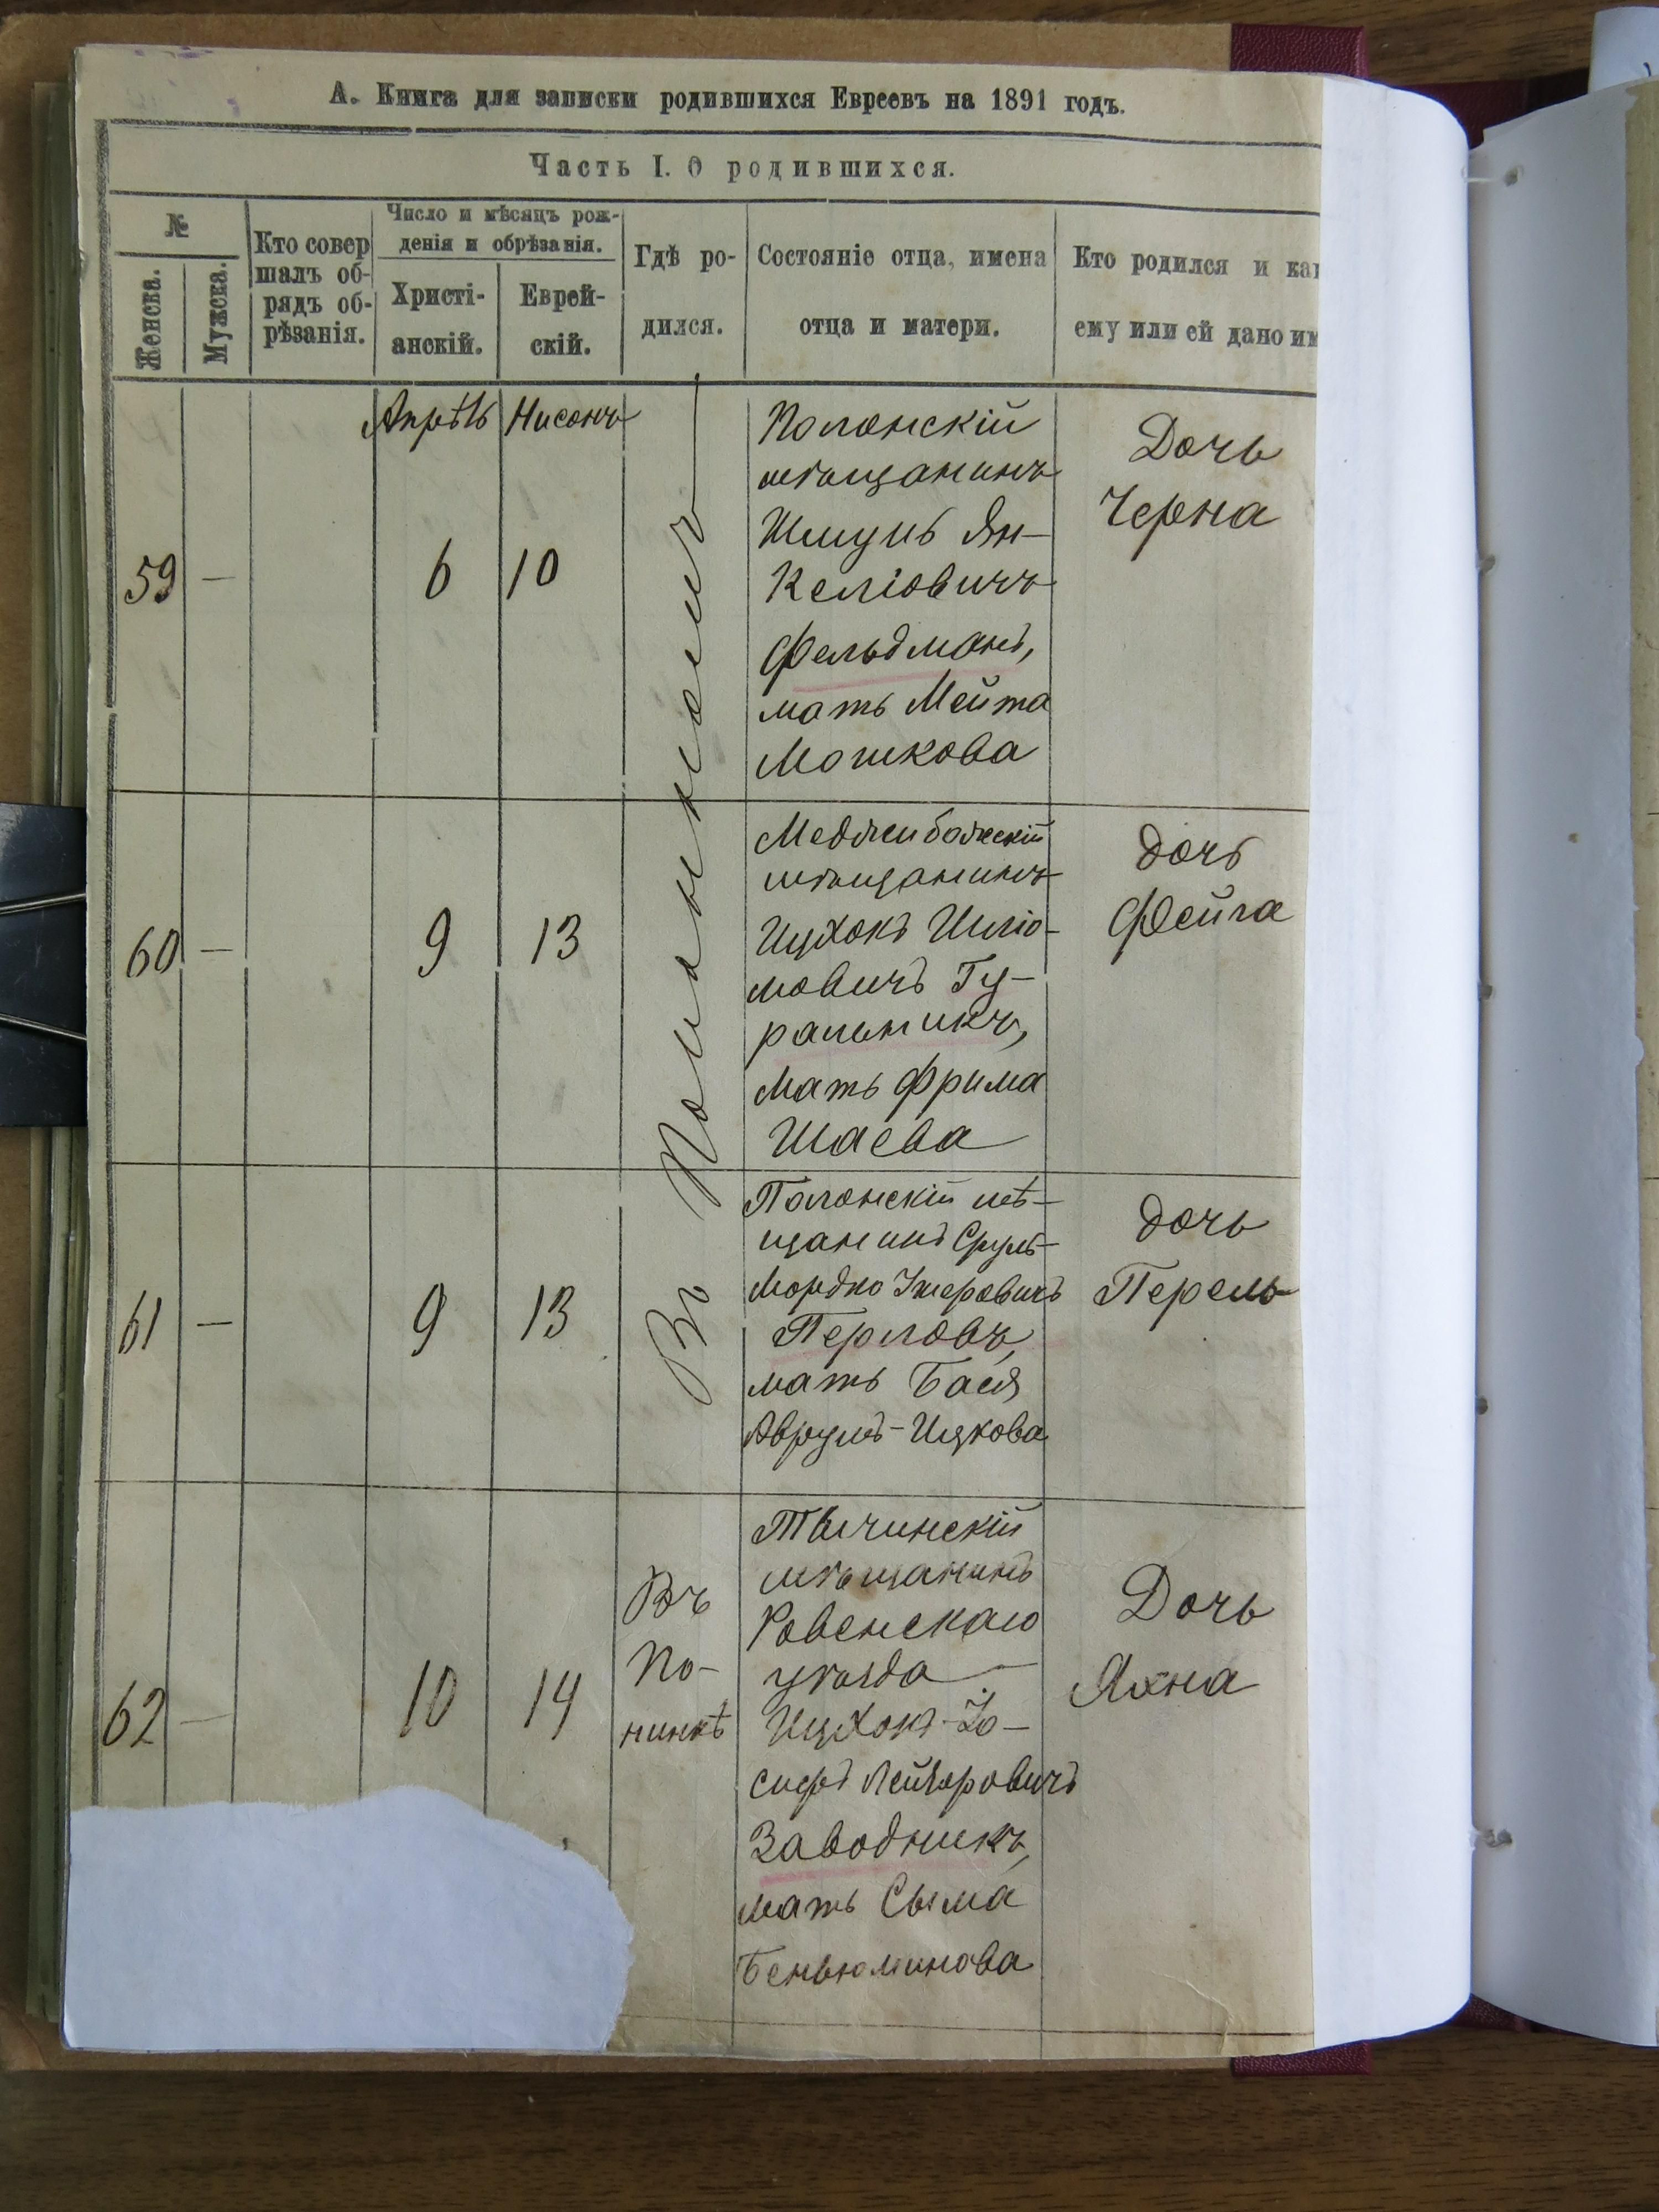 А. Книга для записки родившихся Евреевъ на 1891 годъ.
Часть I. О родившихся.
№
Женска.
Мужска.
Кто совер
шалъ об-
рядъ об-
рѣзанія.
Число и мѣсяцъ рож-
денія и обрѣзанія.
Христі-
анскій.
Еврей-
скій.
Гдѣ ро-
дился.
Состояніе отца, имена
отца и матери.
Кто родился и ка
ему или ей дано им
Апрѣль
Нисонъ
59
—
6
10
Полонскій
мѣщанинъ
Шмуль Ян-
келіовичъ
Фельдманъ,
мать Мейта
Мошкова
Дочь
Черна
Въ
60
—
9
13
Меджибожскій
мѣщанинъ
Ицхокъ Шлио-
мовичъ Гу-
ральникъ,
мать Фрима
Шаева
дочь
Фейга
61
—
9
13
Полонскій мѣ-
щанинъ Сруль-
Мордко
Перловъ,
мать Бася
Аврумъ-Ицкова
дочь
Перель
62
—
10
14
Въ
По-
нинкѣ
мѣщанинъ
Ровенскаго
уѣзда
Ицхокъ-Іо-
сифъ Лейзоровичъ
Заводникъ,
мать Сыма
Беньюминова
Дочь
Яхна